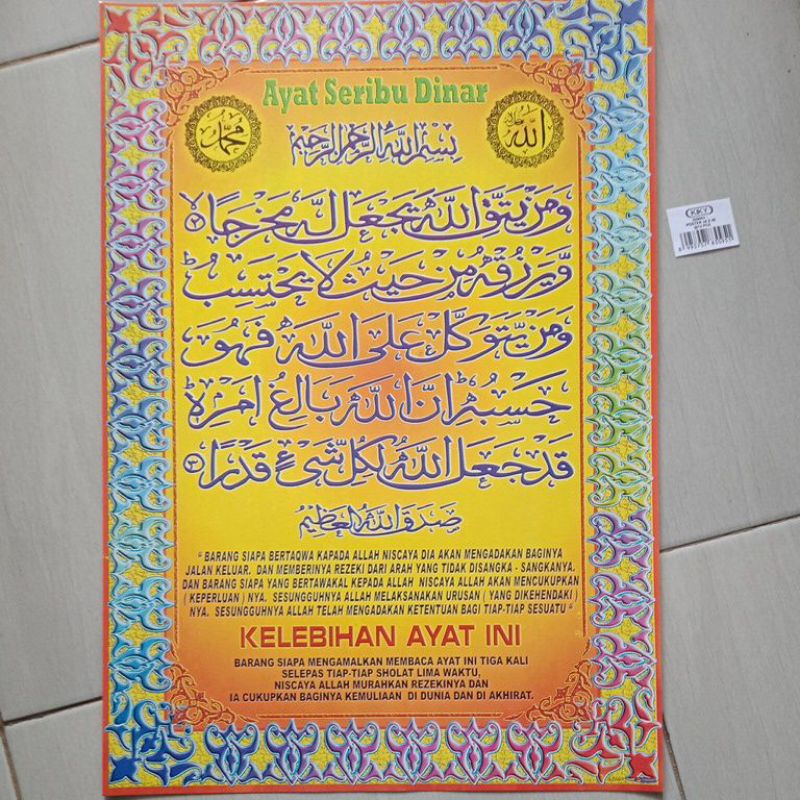 Ayat Seribu Dinar
محمد
الله
بسم الله الرحمن الرحيم
وَمَنْ يَتَّقِ اللّٰهَ يَجْعَلْ لَهُ مَخْرَجًا ۙ ٢
وَّيَرْزُقْهُ مِنْ حَيْثُ لَا يَحْتَسِبُ ۗ
وَمَنْ يَّتَوَكَّلْ عَلَى اللّٰهِ فَهُوَ
حَسْبُهٗ ۗ اِنَّ اللّٰهَ بَالِغُ اَمْرِهٖ ۗ
قَدْ جَعَلَ اللّٰهُ لِكُلِّ شَيْءٍ قَدْرًا ٣
صدق الله العظيم
" BARANG SIAPA BERTAQWA KAPADA ALLAH NISCAYA DIA AKAN MENGADAKAN BAGINYA
JALAN KELUAR. DAN MEMBERINYA REZEKI DARI ARAH YANG TIDAK DISANGKA - SANGKANYA.
DAN BARANG SIAPA YANG BERTAWAKAL KEPADA ALLAH NISCAYA ALLAH AKAN MENCUKUPKAN
( KEPERLUAN ) NYA. SESUNGGUHNYA ALLAH MELAKSANAKAN URUSAN ( YANG DIKEHENDAKI )
NYA. SESUNGGUHNYA ALLAH TELAH MENGADAKAN KETENTUAN BAGI TIAP-TIAP SESUATU "
KELEBIHAN AYAT INI
BARANG SIAPA MENGAMALKAN MEMBACA AYAT INI TIGA KALI
SELEPAS TIAP-TIAP SHOLAT LIMA WAKTU,
NISCAYA ALLAH MURAHKAN REZEKINYA DAN
IA CUKUPKAN BAGINYA KEMULIAAN DI DUNIA DAN DI AKHIRAT.
KKY